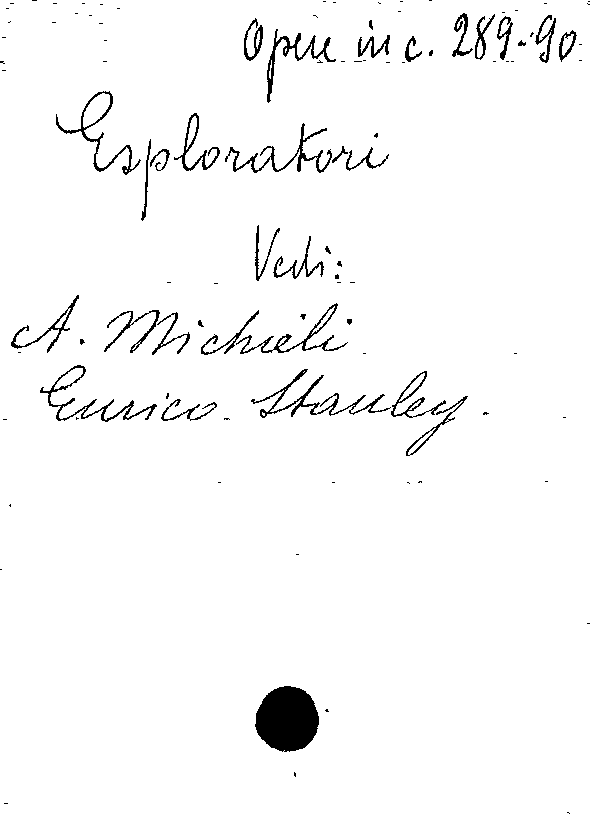 Opere in c. 289-90
Esploratori
Vedi:
A. Michieli
Enrico Stanley.